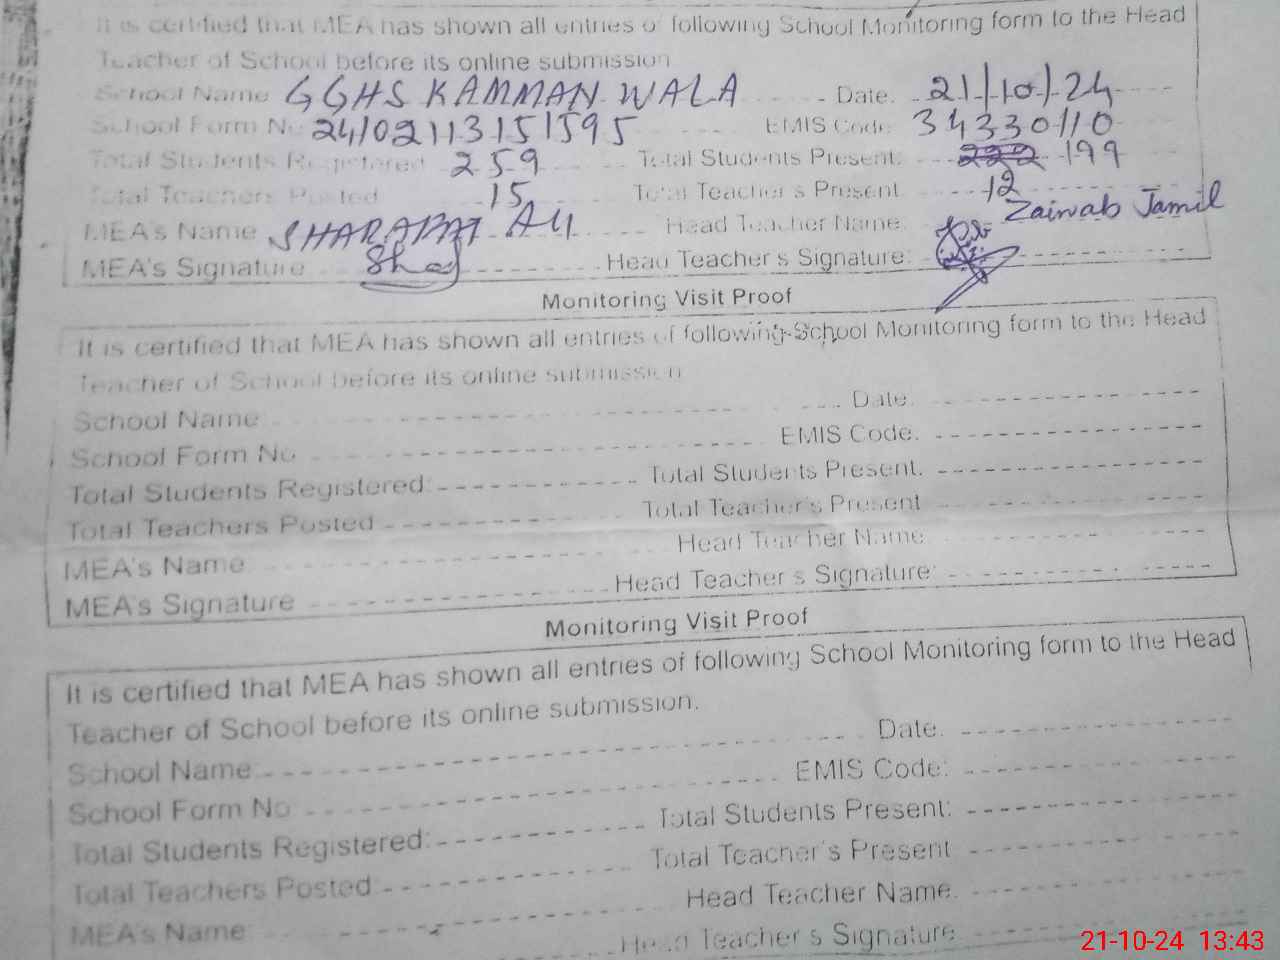 It is certified that MEA has shown all entries of following School Monitoring form to the Head
Teacher of School before its online submission
School Name GGHS KAMMAN WALA Date. 21/10/24
School Form No 2410211315 1595 EMIS Code 34330110
Total Students Registered 259 Total Students Present: 222 199
Total Teachers Posted 15 Total Teacher's Present 12
MEA's Name SHARAFAT ALI Head Teacher Name. Zainab Jamil
MEA's Signature Head Teacher's Signature:
Monitoring Visit Proof
It is certified that MEA has shown all entries of following School Monitoring form to the Head
Teacher of School before its online submission
School Name Date.
School Form No EMIS Code.
Total Students Registered: Total Students Present.
Total Teachers Posted Total Teacher's Present
MEA's Name Head Teacher Name
MEA's Signature Head Teacher's Signature:
Monitoring Visit Proof
It is certified that MEA has shown all entries of following School Monitoring form to the Head
Teacher of School before its online submission.
School Name: Date.
School Form No EMIS Code:
Total Students Registered: Total Students Present:
Total Teachers Posted: Total Teacher's Present
MEA's Name Head Teacher Name.
Head Teacher's Signature
21-10-24 13:43